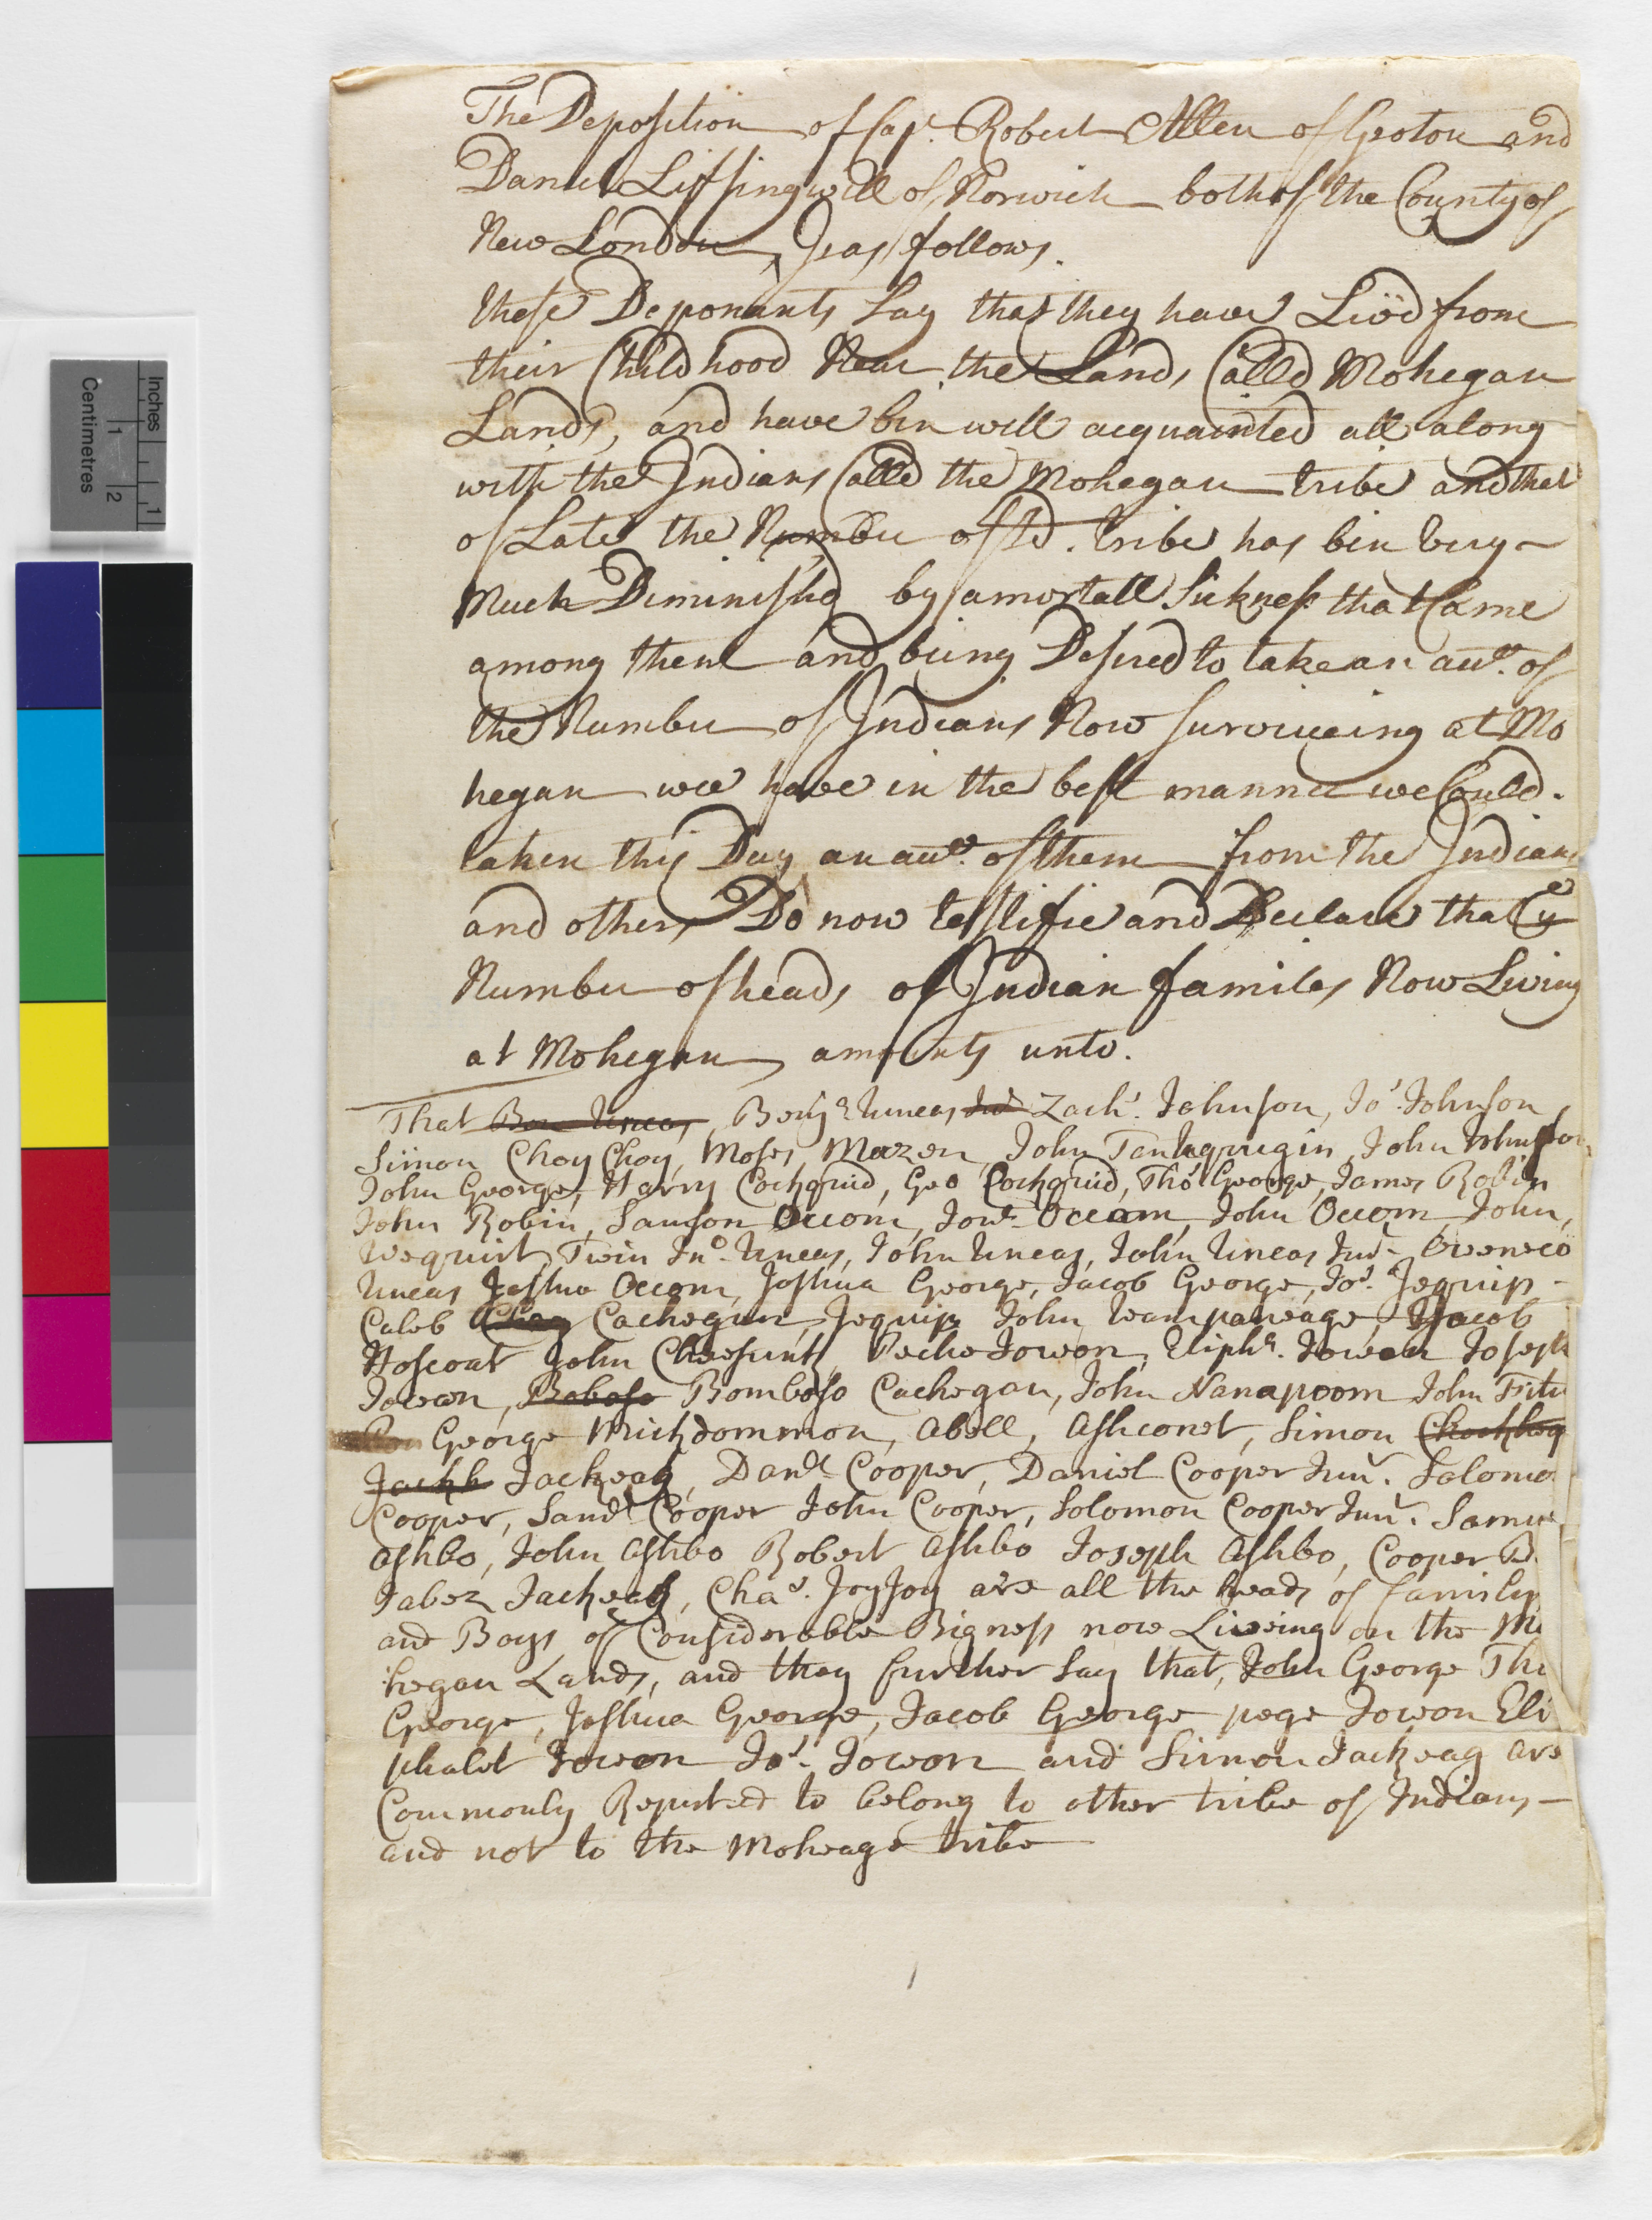 The Deposition of Cap.t Robert Allen of Groton and
Daniel Liffingwell of Norwich both of the County of
New London, Is as follows.
these Deponants Say that they have Livd from
their Childhood Near the Lands Calld Mohegan
Lands, and have bin well acquainted all along
with the Indians Calld the Mohegan tribe and that
of Late the Number of sd. tribe has bin very
Much Diminishd by a mortall Sickness that Came
among them and being Desired to take an acc.tt of
the Number of Indians Now surviveing at Mo
hegan wee have in the best manner we Could.
taken this Day an acc.tt of them from the Indians
and others Do now testifie and Declare that ye
Number of heads of Indian familes Now Living
at Mohegan amounts unto.
That Ben Uncas, Benj.a Uncas Jur Zach.r Johnson, Jos Johnson,
Simon Choy Choy, Moses Mazen, John Tantaquigin, John Johnson,
John George, Harry Cochquid, Geo Cochquid, Tho.s George, James Robin
John Robin, Samson Occom, Jon.e Occom, John Occom, John,
Wequist, Twin Jn.o Uncas, John Uncas, John Uncas Jur. Oweneco
Uncas Joshua Occom, Joshua George, Jacob George, Jos. Jequip,
Caleb Cachegun, Jequip John Wampaneage, Jacob
Hoscoat John Cheesunk, Peche Jowon, Eliph.t Jowon Joseph
Jowon, Boboso Bomboso Cachegan, John Nanapoom John
George Mickdommon, Abell, Ashconet, Simon Chockheg
Jackh Jackeag, Dan.l Cooper, Daniel Cooper Junr. Solomo
Cooper, Sam.l Cooper John Cooper, Solomon Cooper Junr. Samu
Ashbo, John Ashbo Robert Ashbo Joseph Ashbo, Cooper
Jabez Jackeag, Cha.s JoyJoy are all the heads of familys
and Boys of Considerable Bigness now Liveing on the Mo
hegan Lands, and they further Say that, John George Tho
George, Joshua George, Jacob George pege Jowon Eli
phalet Jowon Jos. Jowon and Simon Jackeag are
Commonly Reputed to belong to other tribe of Indians
and not to the Moheage tribe
Inches
1
1
2
Centimetres